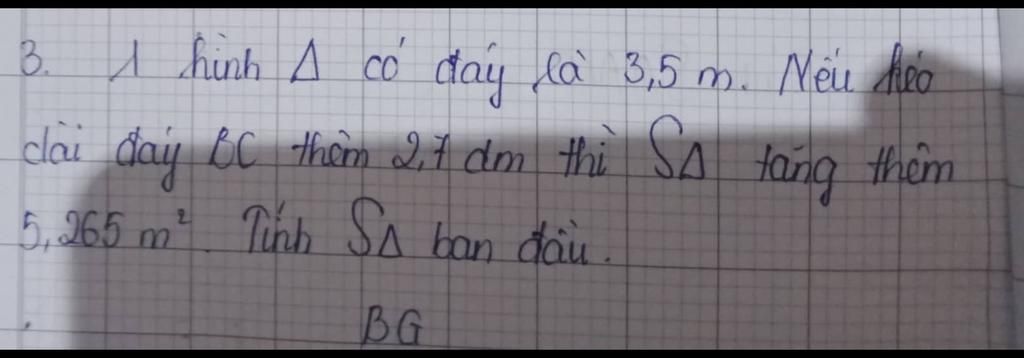 3. 1 hình Δ có đáy là 3,5 m. Nếu kéo
dài đáy BC thêm 2,7 dm thì SΔ tăng thêm
5,265 m². Tính SΔ ban đầu.
BG